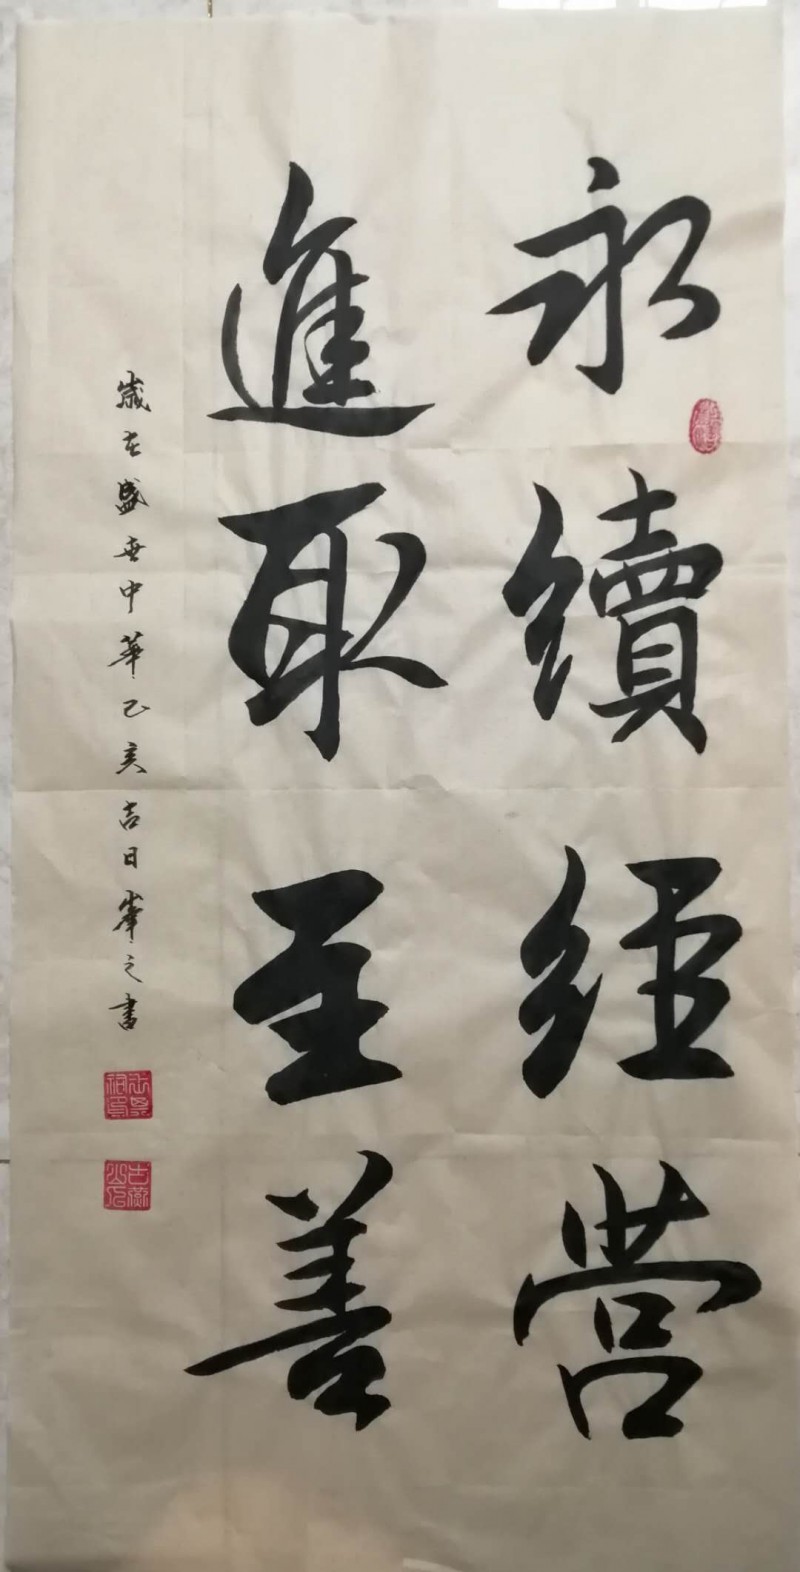 永續經營
進取至善
歲在盛世中華乙亥吉日峯之書